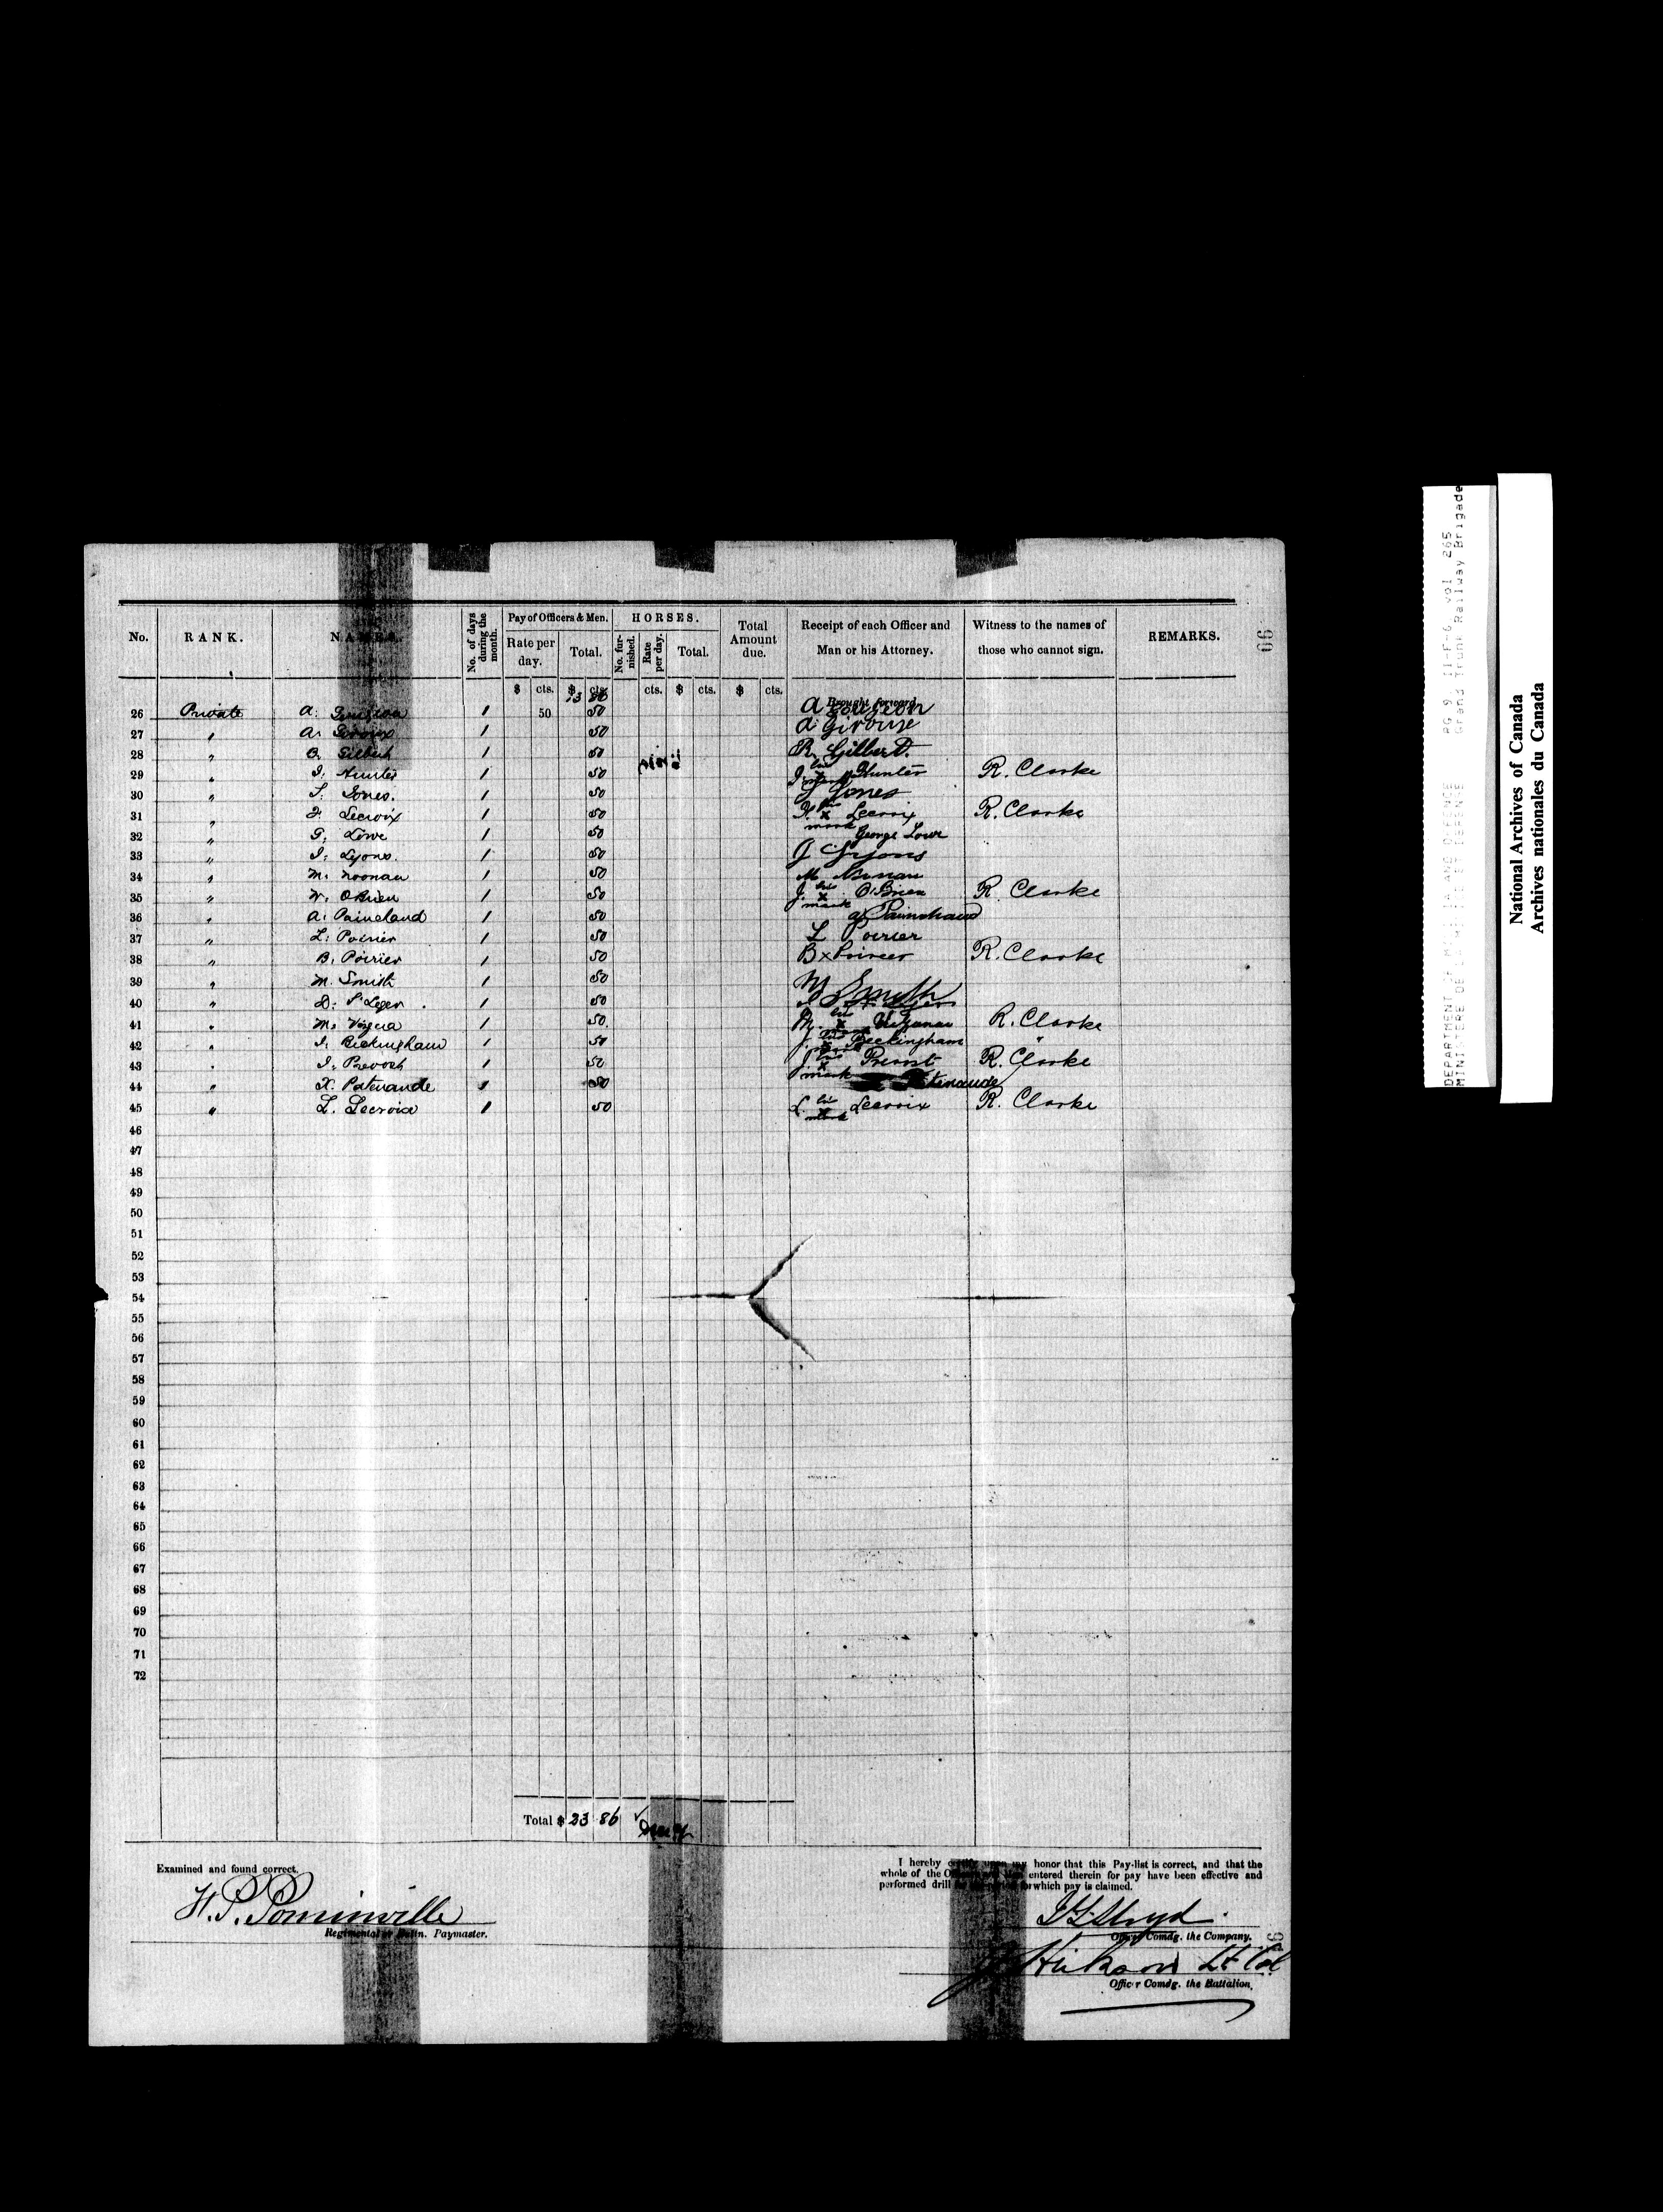 No. RANK. NAMES. No. of days during the month. Pay of Officers & Men. Rate per day. Total. HORSES. No. furnished. Rate per day. Total. Total Amount due. Receipt of each Officer and Man or his Attorney. Witness to the names of those who cannot sign. REMARKS.
$ cts. $ cts. cts. $ cts. $ cts.
13 86 Brought forward
26 Private A. 1 50 50 A Gougeon
27 " A. Giroux 1 50 A Girouse
28 " Gilbert 1 50 R. Gilbert.
29 " J. Hunter 1 50 J. his x mark Hunter R. Clarke
30 " S. Jones. 1 50 S Jones
31 " F. Lecroix 1 50 F. his x mark Lecroix R. Clarke
32 " G. Lowe 1 50 George Lowe
33 " J. Lyons. 1 50 J Lyons
34 " M. Noonan 1 50 M Nunan
35 " OBrien 1 50 J. his x mark O'Brien R. Clarke
36 " A. Paincland 1 50 a Painchaud
37 " L. Poirier 1 50 L Poirier
38 " B. Poirier 1 50 B x Poirier R. Clarke
39 " M. Smith 1 50 M Smith
40 " D. St Leger 1 50
41 " M. 1 50 M. his x R. Clarke
42 " J. Beckingham 1 50 J. his x mark Beckingham "
43 " J. Prevost 1 50 J his x mark Prevost R. Clarke
44 " X. Patenaude 1 50
45 " L. Lecroix 1 50 L. his x mark Lecroix R. Clarke
46
47
48
49
50
51
52
53
54
55
56
57
58
59
60
61
62
63
64
65
66
67
68
69
70
71
72
Total $ 23 86 ✓
Examined and found correct.
H. P. Pominville
Regimental or Battn. Paymaster.
I hereby certify upon my honor that this Pay-list is correct, and that the
whole of the Officers and Men entered therein for pay have been effective and
performed drill for the period for which pay is claimed.
Lloyd
Officer Comdg. the Company.
J Hickson Lt Col
Officer Comdg. the Battalion.
66
66
DEPARTMENT OF MILITIA AND DEFENCE RG 9, II-F-6, vol. 265
MINISTERE DE LA MILICE ET DEFENSE Grand Trunk Railway Brigade
National Archives of Canada
Archives nationales du Canada